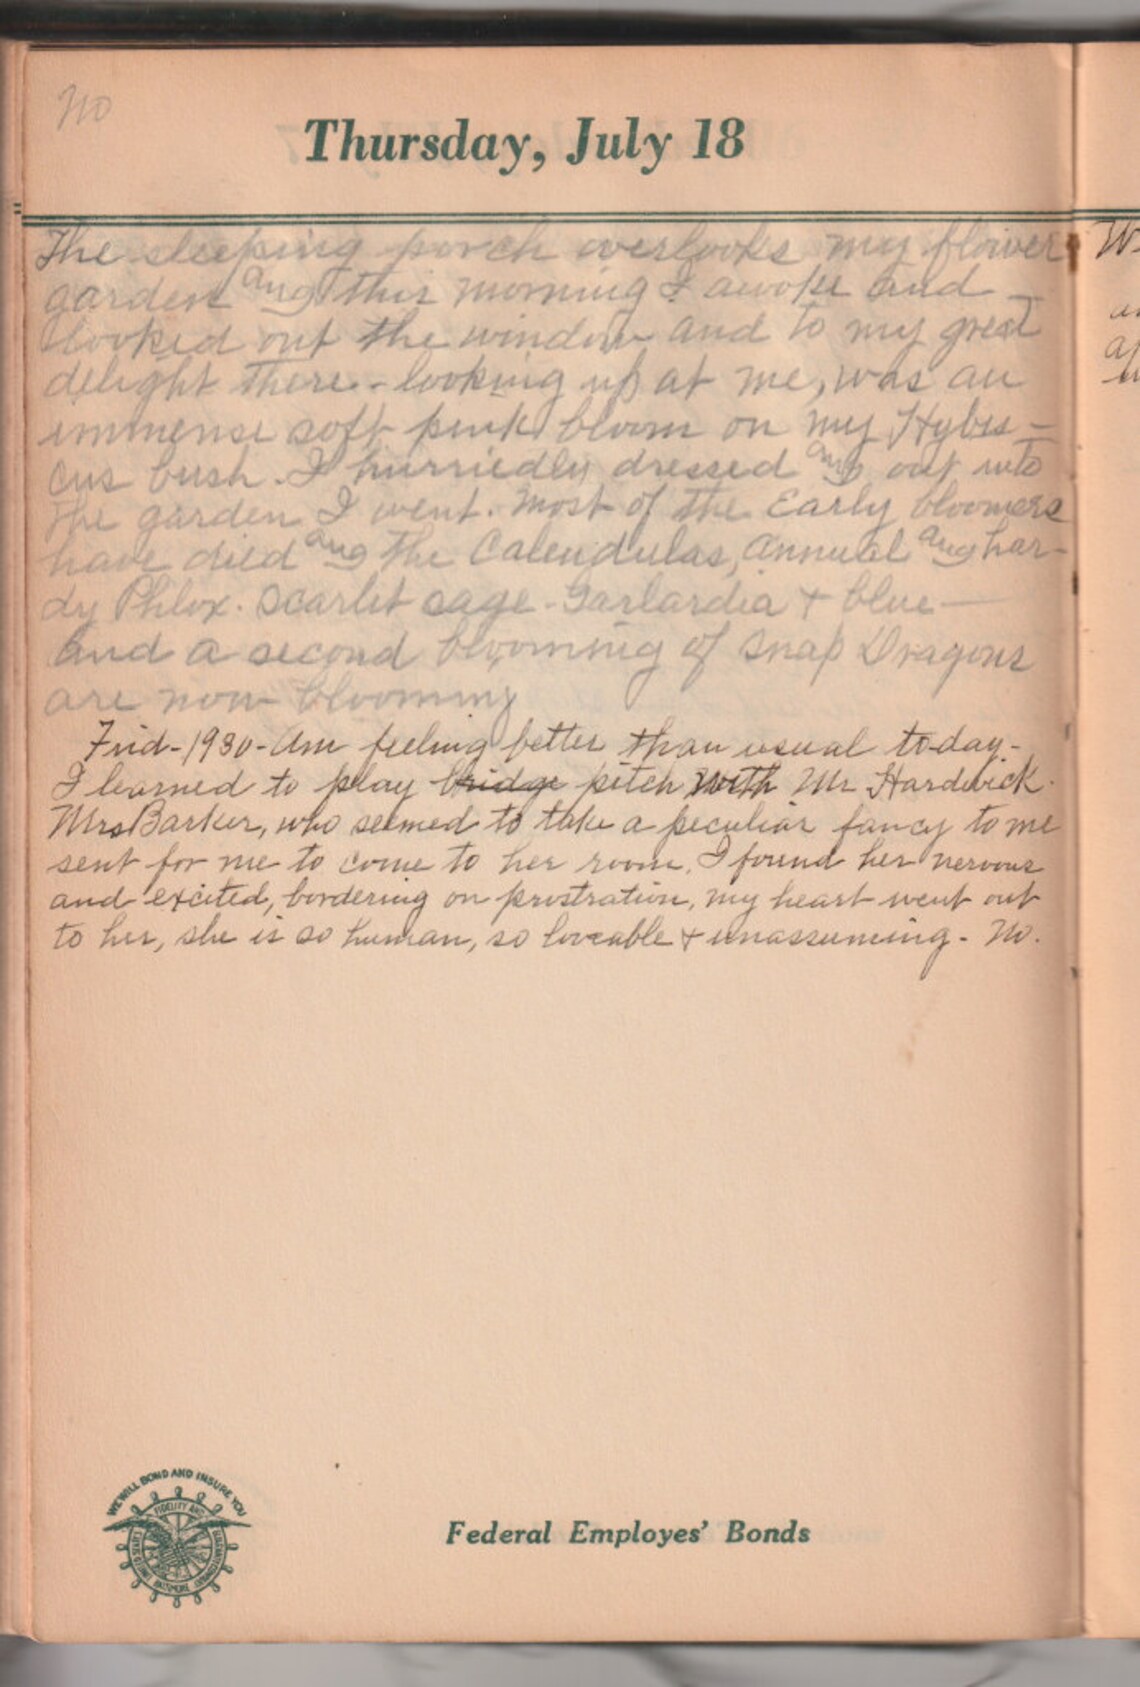 no
Thursday, July 18
The sleeping porch overlooks my flower
garden and this morning I awoke and
looked out the window and to my great
delight there - looking up at me, was an
immense soft pink bloom on my Hybis-
cus bush. I hurriedly dressed and out into
the garden I went. Most of the Early bloomers
have died and the Calendulas, annual and har-
dy Phlox. Scarlet sage - Garlardia + blue —
and a second blooming of Snap Dragons
are now blooming
Frid - 1930 - Am feeling better than usual to-day -
I learned to play bridge pitch with Mr Hardwick.
Mrs Barker, who seemed to take a peculiar fancy to me
sent for me to come to her room. I found her nervous
and excited, bordering on prostration, my heart went out
to her, she is so human, so loveable + unassuming - No.
WE WILL BOND AND INSURE YOU
FIDELITY AND GUARANTY COMPANY
BALTIMORE
UNITED STATES
Federal Employes' Bonds